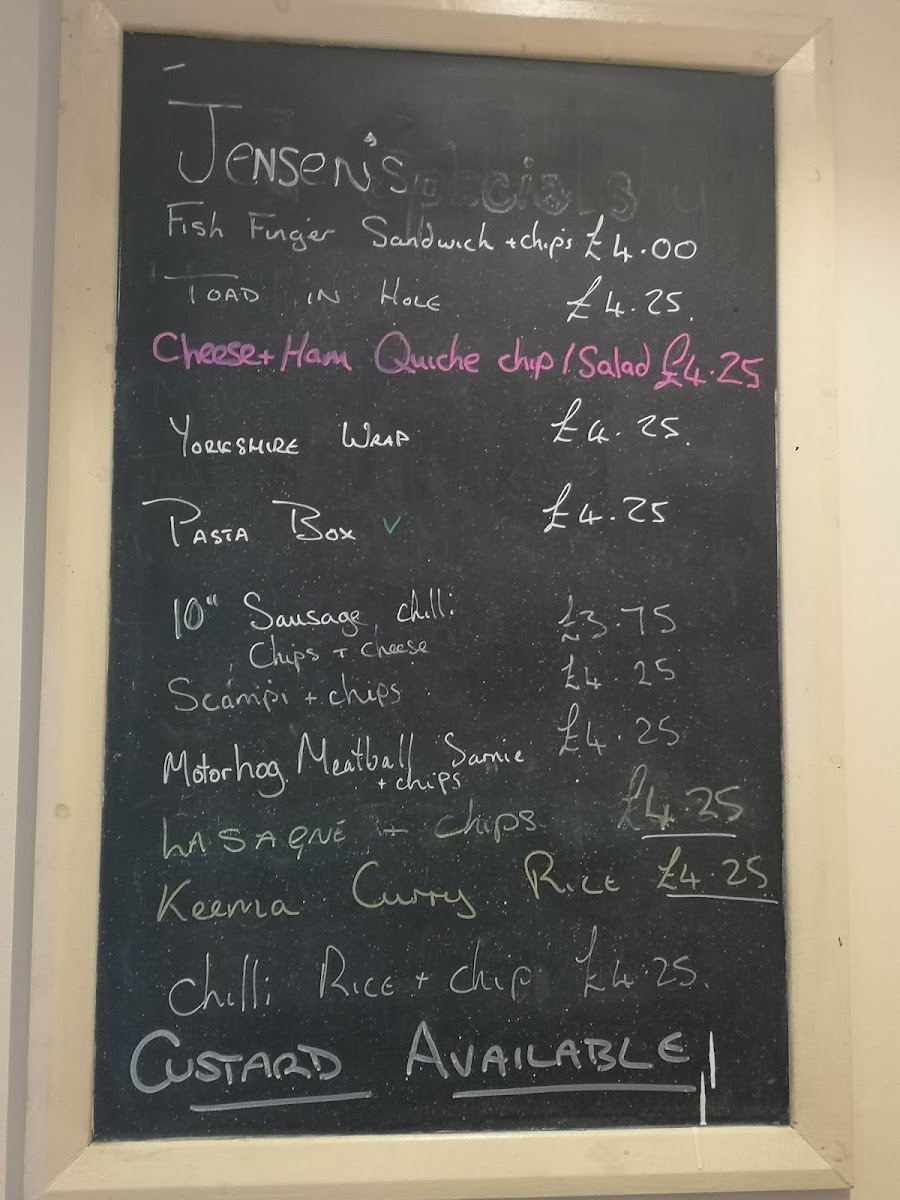 Jensen's Specials
Fish Finger Sandwich + chips £4.00
Toad in Hole £4.25.
Cheese + Ham Quiche chip / Salad £4.25
Yorkshire Wrap £4.25.
Pasta Box ✓ £4.25
10" Sausage, chilli £3.75
Chips + cheese
Scampi + chips £4.25
Motorhog Meatball Sarnie £4.25
+ chips
Lasagne + chips £4.25
Keema Curry Rice £4.25
Chilli Rice + chip £4.25.
Custard Available!